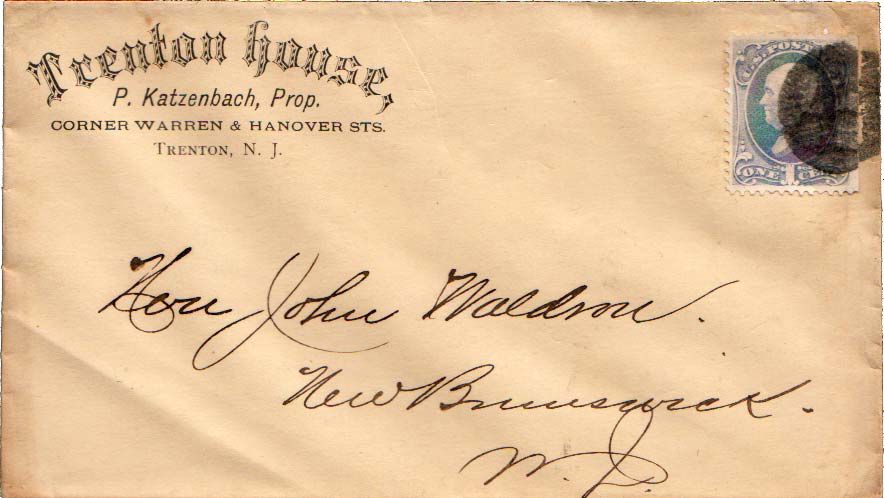 Trenton House,
P. Katzenbach, Prop.
CORNER WARREN & HANOVER STS.
TRENTON, N. J.
U.S. POST
ONE CE
Hon John Waldron.
New Brunswick.
N. J.